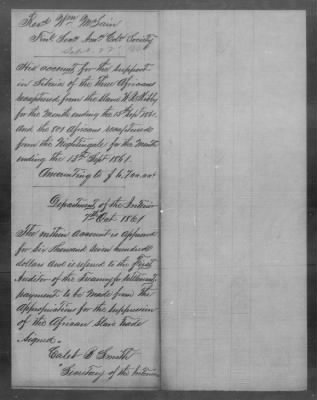 Revd Wm McLain
Finl Secy Amn Coln Society
Sept 27
His account for the support
in Liberia of the three Africans
recaptured from the Slaver W. R. Kibby
for the Month ending the 15th Sept 1861.
And the 801 Africans recaptured
from the Nightingale for the Month
ending the 15th Sept 1861.
Amounting to $ 6,700.00
Department of the Interior
7th Oct 1861
The within account is approved
for Six thousand seven hundred
dollars and is referred to the First
Auditor of the Treasury for settlement,
payment to be made from the
Appropriation for the suppression
of the African Slave Trade
Signed.
Caleb B Smith
Secretary of the Interior